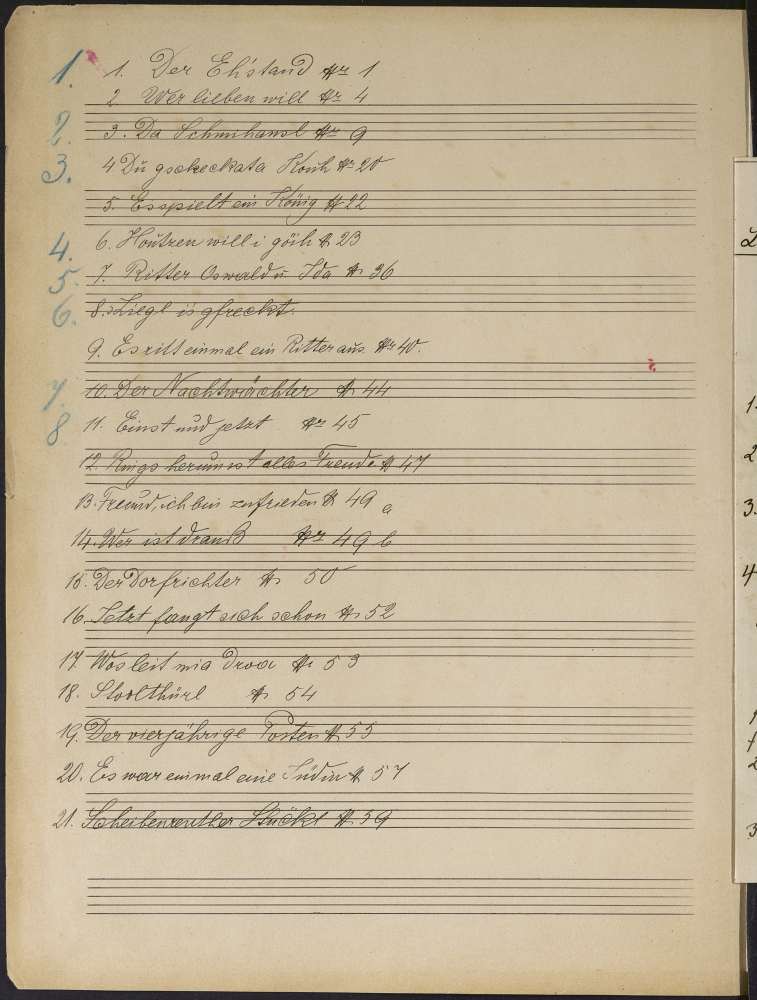 1. 1. Der Eh'stand Nr 1
2. Wer lieben will Nr 4
2. 3. Da Schmhansl Nr 9
3. 4 Dü gscheckata Kouh Nr 20
5. Es spielt ein König Nr 22
4. 6. Houtzen will i göih Nr 23
5. 7. Ritter Oswald u. Ida Nr 36
6. 8. Liegl is gfreckt.
9. Es ritt einmal ein Ritter aus. Nr 40.
7. 10. Der Nachtwächter Nr 44
8 11. Einst und jetzt Nr 45
12. Rings herum ist alles Freude Nr 47
13. Freund, ich bin zufrieden Nr 49 a
14. Wer ist drauß Nr 49 b
15. Der Dorfrichter Nr 50
16. Jetzt fangt sich schon Nr 52
17. Wos leit mia droa Nr 53
18. Stoolthürl Nr 54
19. Der vierjährige Posten Nr 55
20. Es war einmal eine Jüdin Nr 57
21. Scheibenreuther Stückl Nr 59
1.
2
3.
4
2
3